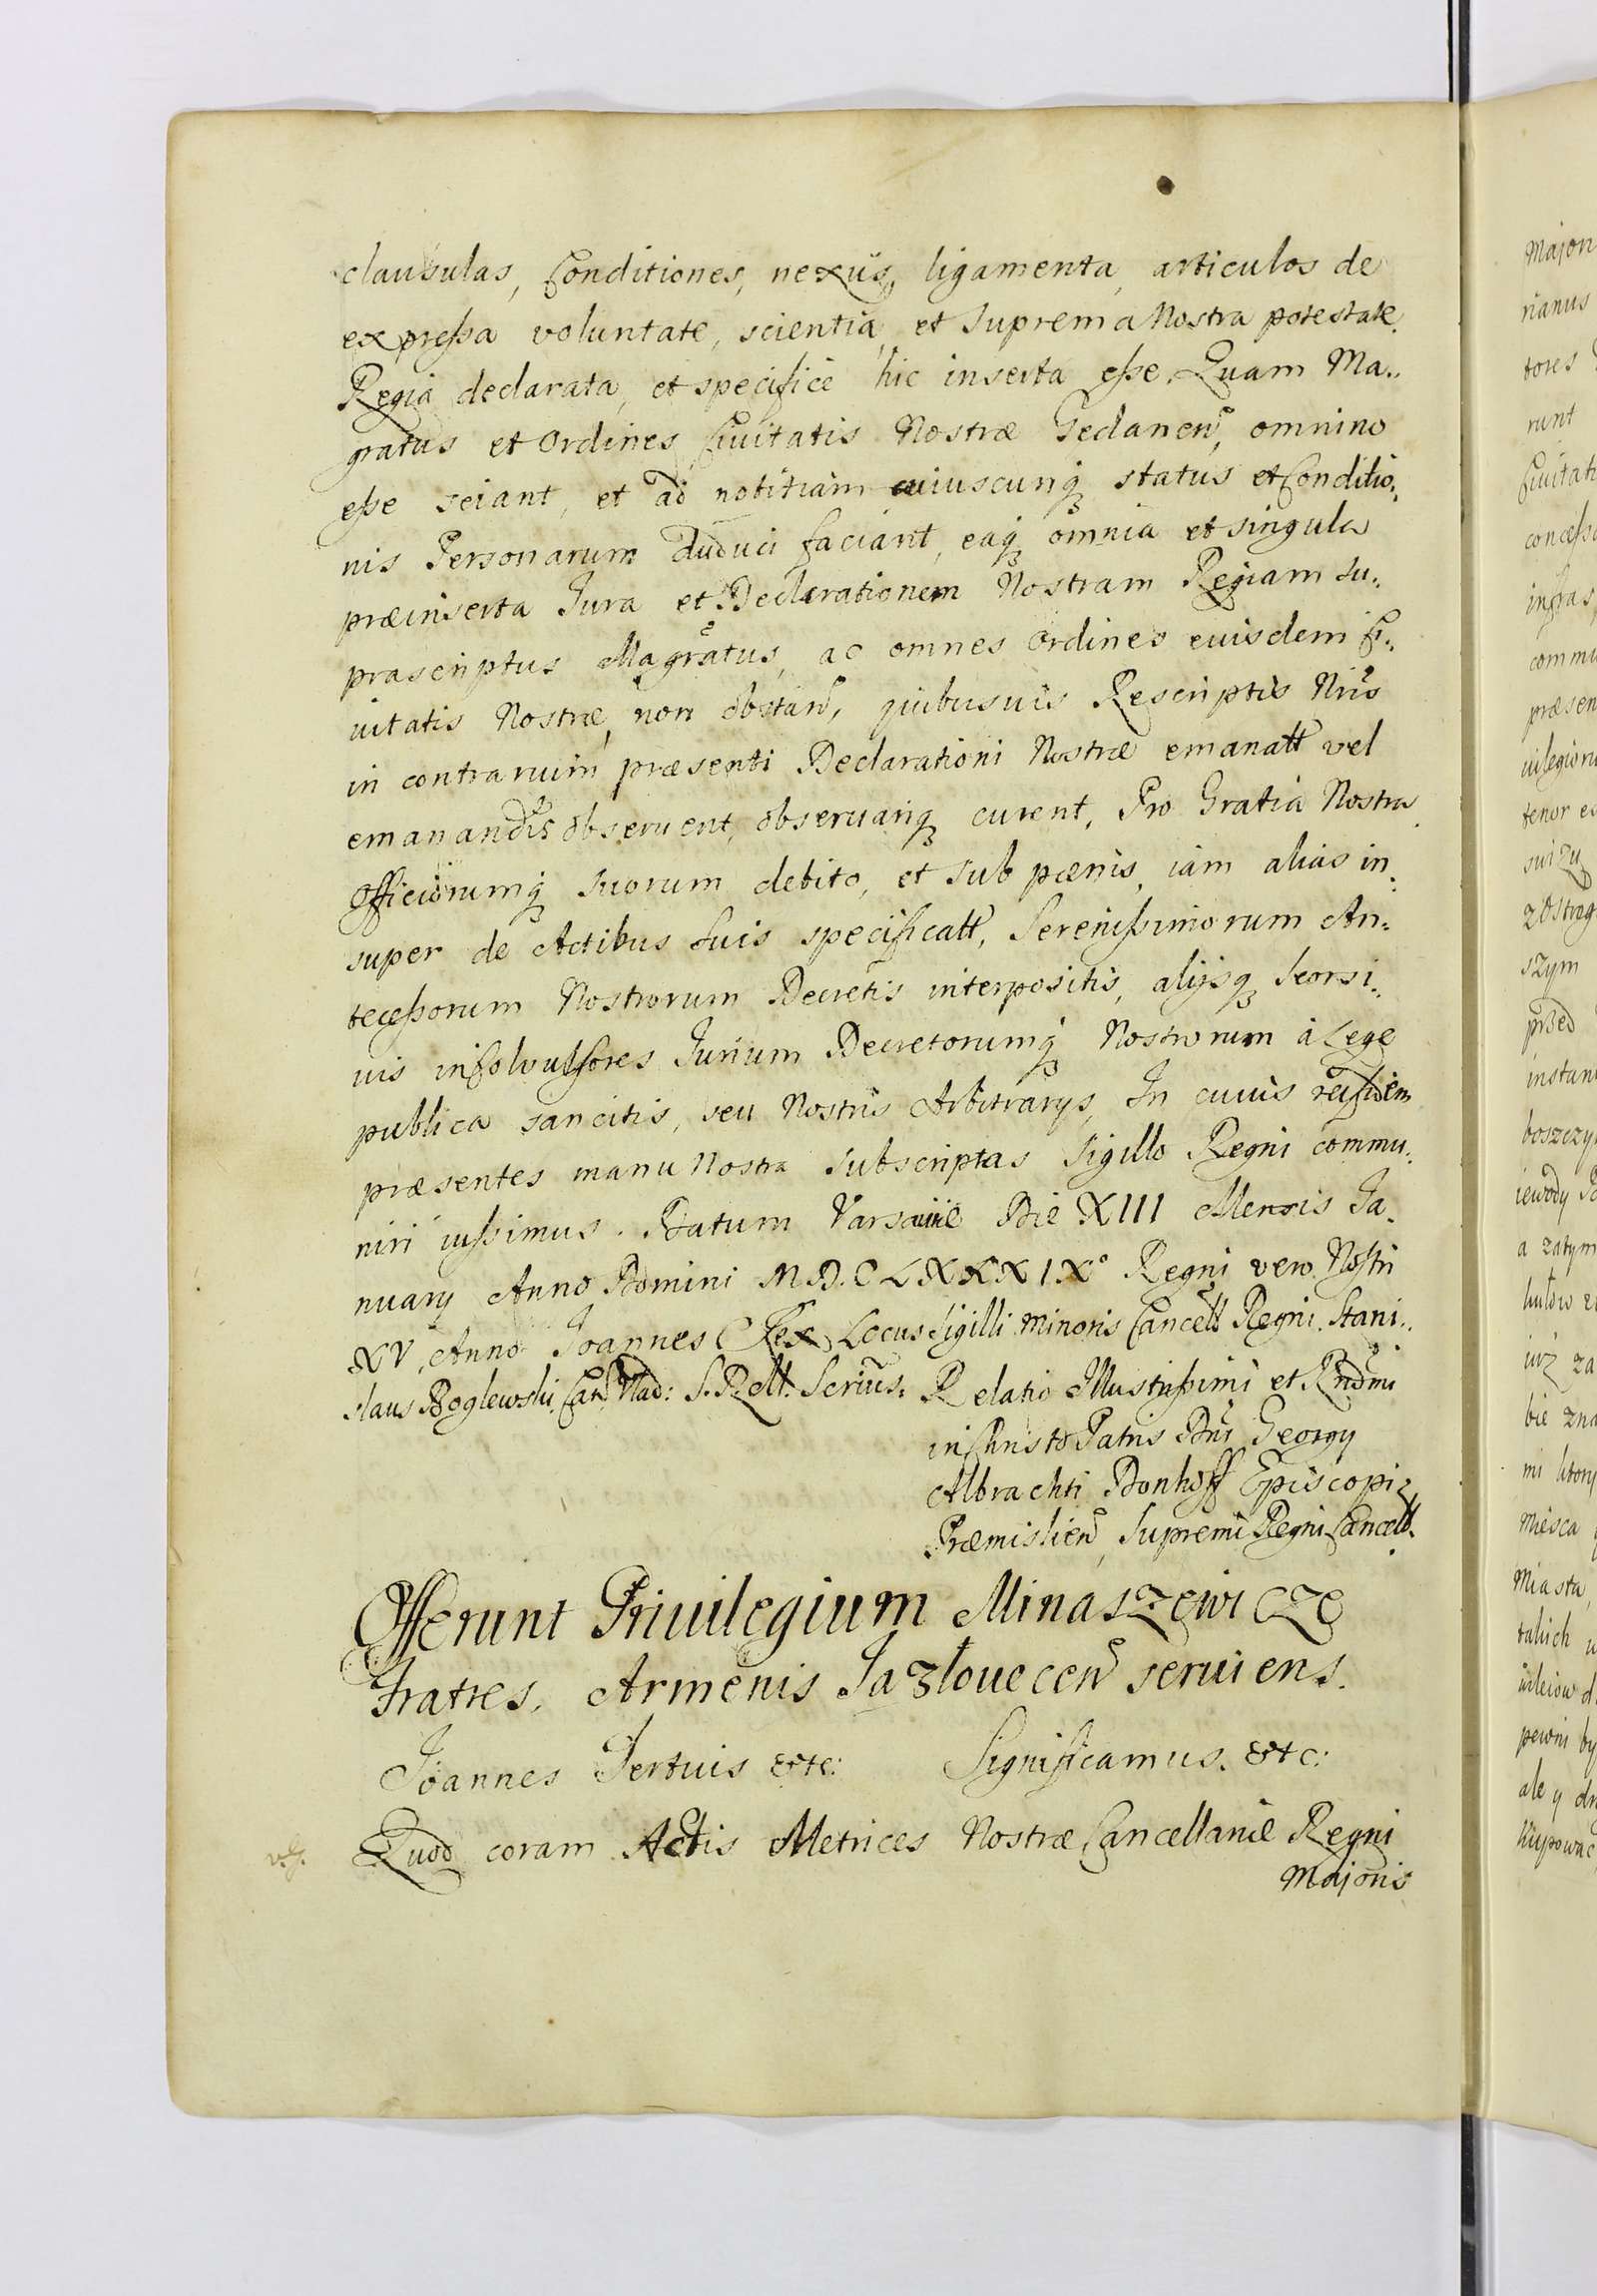 clausulas, Conditiones, nexus, ligamenta, articulos de
expressa voluntate, scientia, et Suprema Nostra potestate
Regia declarata, et specifice hic inserta esse. Quam Ma..
gratus et Ordines Civitatis Nostræ Gedanen, omnino
esse sciant, et ad notitiam cuiuscunq status et Conditio:
nis Personarum deduci faciant, eaq omnia et singula
præinserta Jura et Declarationem Nostram Regiam su:
prascriptus Magratus, ac omnes Ordines eiusdem Ci:
uitatis Nostræ, non obstan, quibusuis Rescriptis Nris
in contrarium præsenti Declarationi Nostræ emanatt vel
emanandis obseruent, obseruariq curent, Pro Gratia Nostra
Officiorumq suorum debito, et sub pœnis, iam alias in:
super de Actibus suis specificatt, Serenissimorum An:
tecessorum Nostrorum Decretis interpositis, alijsq seorsi:
uis in Jurium Decretorumq Nostrorum à Lege
publica sancitis, seu Nostris Arbitrarys, In cuius rei fidem
præsentes manu Nostra Subscriptas Sigillo Regni commu:
niri iussimus. Datum Varsauiæ Die XIII Mensis Ja:
nuary Anno Domini M.D.C LXXXIX° Regni vero Nostri
XV, Anno Joannes Rex Locus Sigilli Minoris Cancell Regni. Stani..
slaus Boglewski Can: Vlad: S.R.Mt. Scrius.
Relatio Illustrissimi et Rndmi
in Christo Patris Dni Georgy
Albrachti Donhoff Episcopi
Præmislien, Supremi Regni Cancell.
Offerunt Priuilegium Minaszewicze
Fratres, Armenis Jazlouecen seruiens.
Joannes Tertuis etc: Significamus. etc:
Quod coram Actis Metrices Nostræ Cancellariæ Regni
Majoris